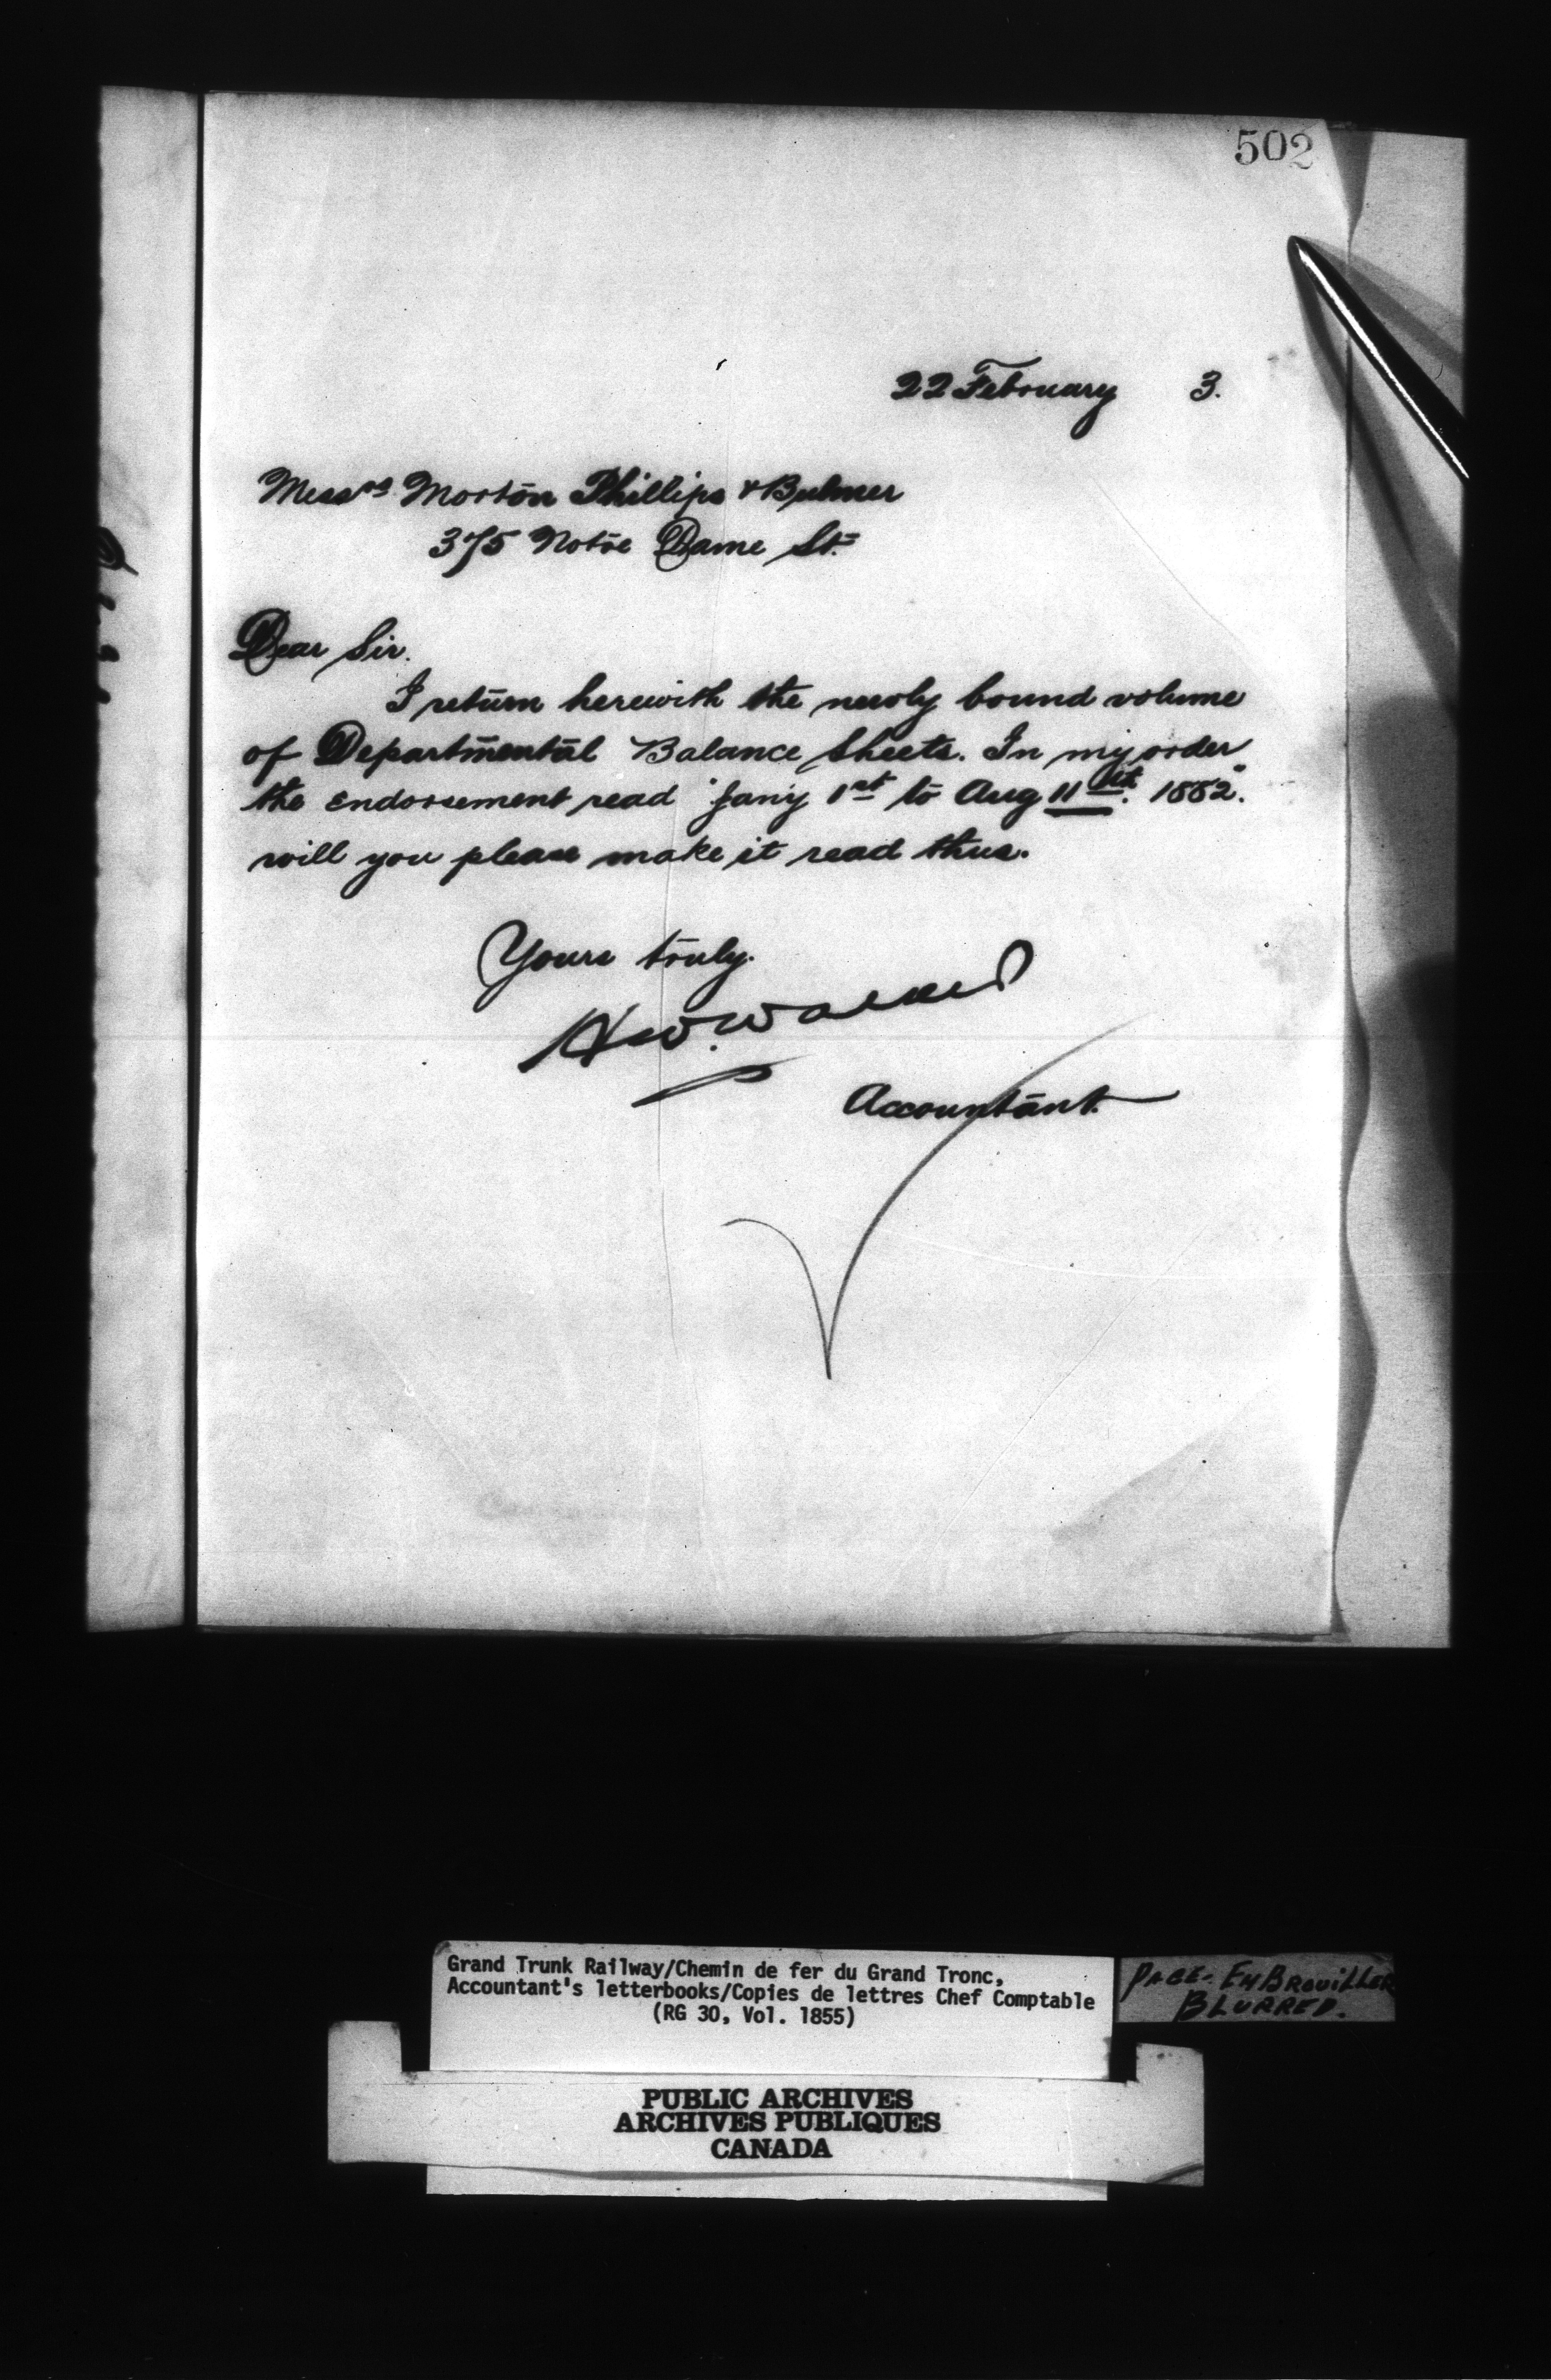 502
22 February 3.
Messrs Morton Phillips & Bulmer
375 Notre Dame St.
Dear Sir.
I return herewith the newly bound volume
of Departmental Balance Sheets. In my order
the endorsement read "Jany 1st to Aug 11th. 1882".
will you please make it read thus.
Yours truly.
HW. Walker
Accountant.
Grand Trunk Railway/Chemin de fer du Grand Tronc,
Accountant's letterbooks/Copies de lettres Chef Comptable
(RG 30, Vol. 1855)
PAGE. EMBROUILLER
BLURRED.
PUBLIC ARCHIVES
ARCHIVES PUBLIQUES
CANADA